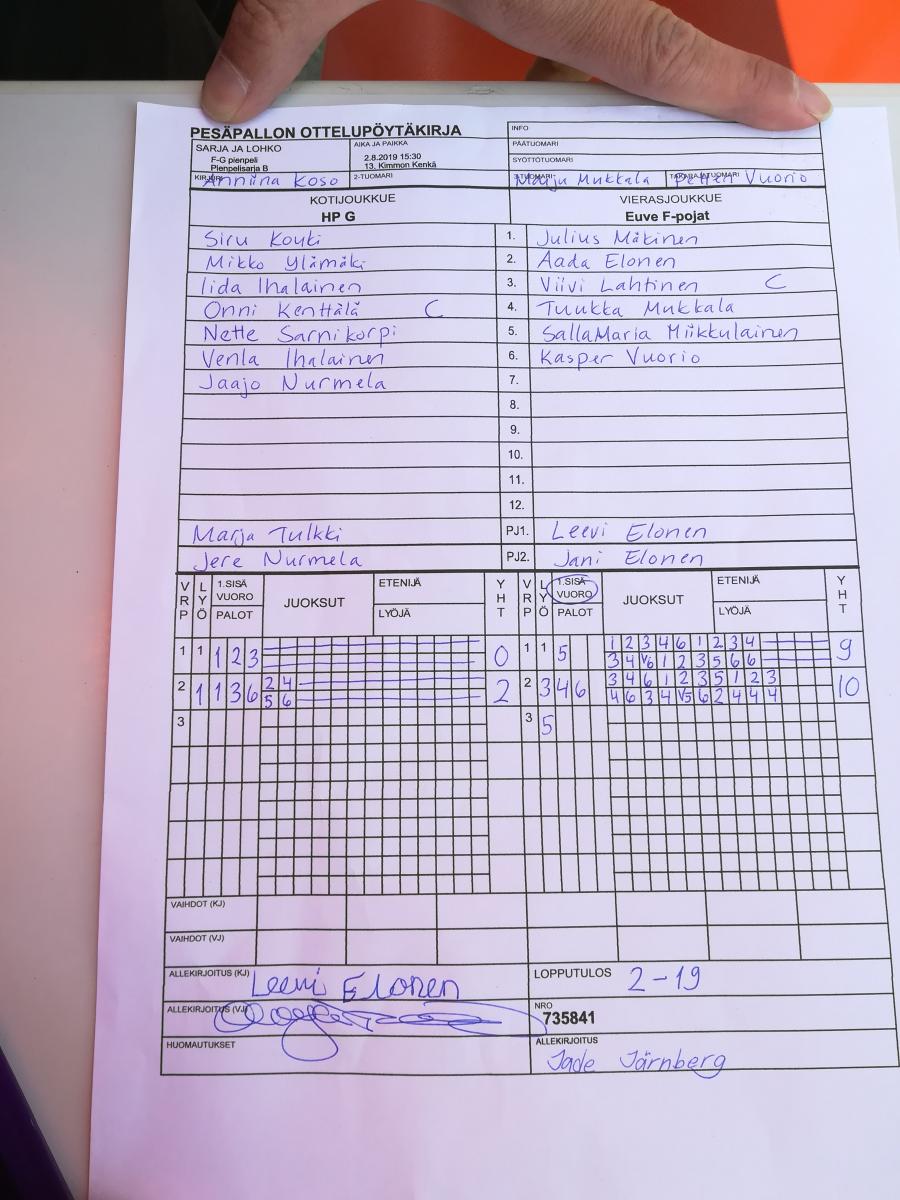 PESÄPALLON OTTELUPÖYTÄKIRJA
INFO
SARJA JA LOHKO
F-G pienpeli
Pienpelisarja B
AIKA JA PAIKKA
2.8.2019 15:30
13. Kimmon Kenkä
PÄÄTUOMARI
SYÖTTÖTUOMARI
KIRJURI Anniina Koso 2-TUOMARI 3-TUOMARI Marju Mukkala TAKARAJATUOMARI Petteri Vuorio
KOTIJOUKKUE VIERASJOUKKUE
HP G Euve F-pojat
Siru Kouki 1. Julius Mäkinen
Mikko Ylämäki 2. Aada Elonen
Iida Ihalainen 3. Viivi Lahtinen C
Onni Kenttälä C 4. Tuukka Mukkala
Nette Sarnikorpi 5. SallaMaria Miikkulainen
Venla Ihalainen 6. Kasper Vuorio
Jaajo Nurmela 7.
8.
9.
10.
11.
12.
Marja Tulkki PJ1. Leevi Elonen
Jere Nurmela PJ2. Jani Elonen
VRP LYÖ 1.SISÄ VUORO PALOT JUOKSUT ETENIJÄ LYÖJÄ YHT VRP LYÖ 1.SISÄ VUORO PALOT JUOKSUT ETENIJÄ LYÖJÄ YHT
1 1 1 2 3 0 1 1 5 1 2 3 4 6 1 2 3 4 9
3 4 V6 1 2 3 5 6 6
2 1 1 3 6 2 4 2 2 3 4 6 3 4 6 1 2 3 5 1 2 3 10
5 6 4 6 3 4 V5 6 2 4 4 4
3 3 5
VAIHDOT (KJ)
VAIHDOT (VJ)
ALLEKIRJOITUS (KJ) Leevi Elonen LOPPUTULOS 2-19
ALLEKIRJOITUS (VJ) NRO
735841
HUOMAUTUKSET ALLEKIRJOITUS
Jade Järnberg